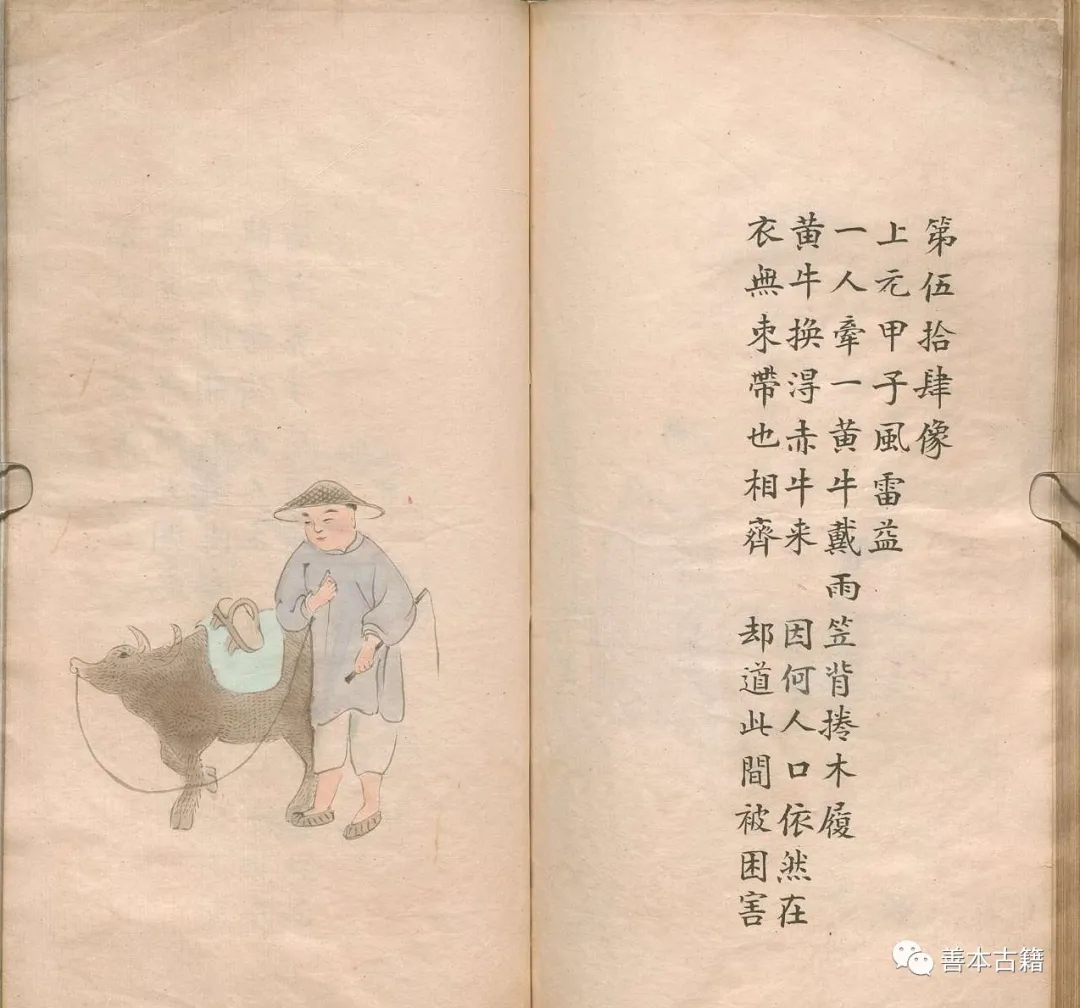 第伍拾肆像
上元甲子風雷益
一人牽一黄牛戴雨笠背捲木履
黄牛换得赤牛来 因何人口依然在
衣無束帶也相齊 却道此間被困害
善本古籍